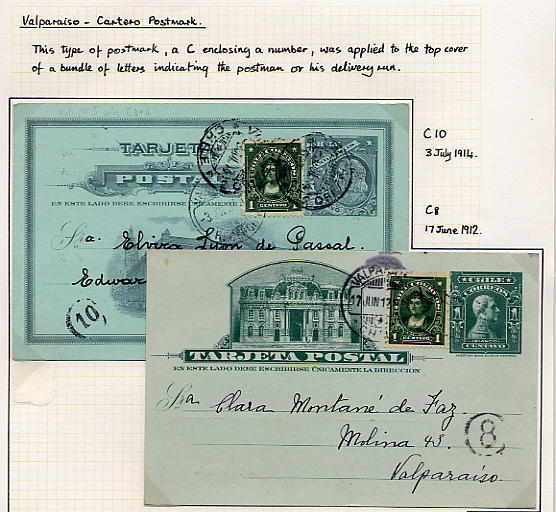 Valparaiso - Cartero Postmark.
This type of postmark, a C enclosing a number, was applied to the top cover
of a bundle of letters indicating the postman or his delivery run.
C10
3 July 1914.
C8
17 June 1912.
TARJETA
POSTAL
EN ESTE LADO DEBE ESCRIBIRSE
CHILE
1 CENTAVO 1
Sra. Elvira de Pascal.
Edwar
10
VALPARAISO
17 JUN 12
1 CENTAVO 1
CHILE
CORREOS
CENTAVO
TARJETA POSTAL
EN ESTE LADO DEBE ESCRIBIRSE ÚNICAMENTE LA DIRECCION
Sra Clara Montané de Faz.
Molina 43.
Valparaiso.
8